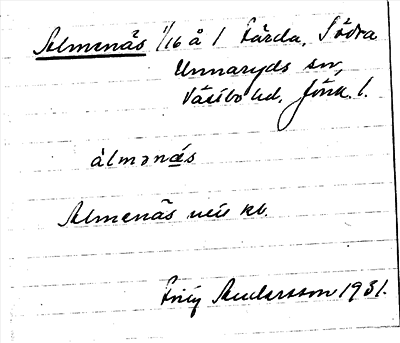 Almenäs 1/16 å 1 Färda, Södra
Unnaryds sn,
Västbo hd, Jönk. l.
álmǝnǽs
Almenäs
Andersson 1931.